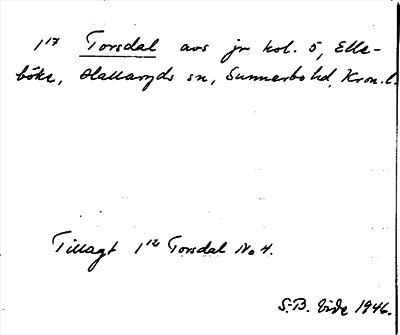 1¹⁷ Torsdal avs jr kol. 5, Elle-
böke, Hallaryds sn, Sunnerbo hd, Kron. l.
Tillagt 1¹² Torsdal No 4.
S.B. Vide 1946.